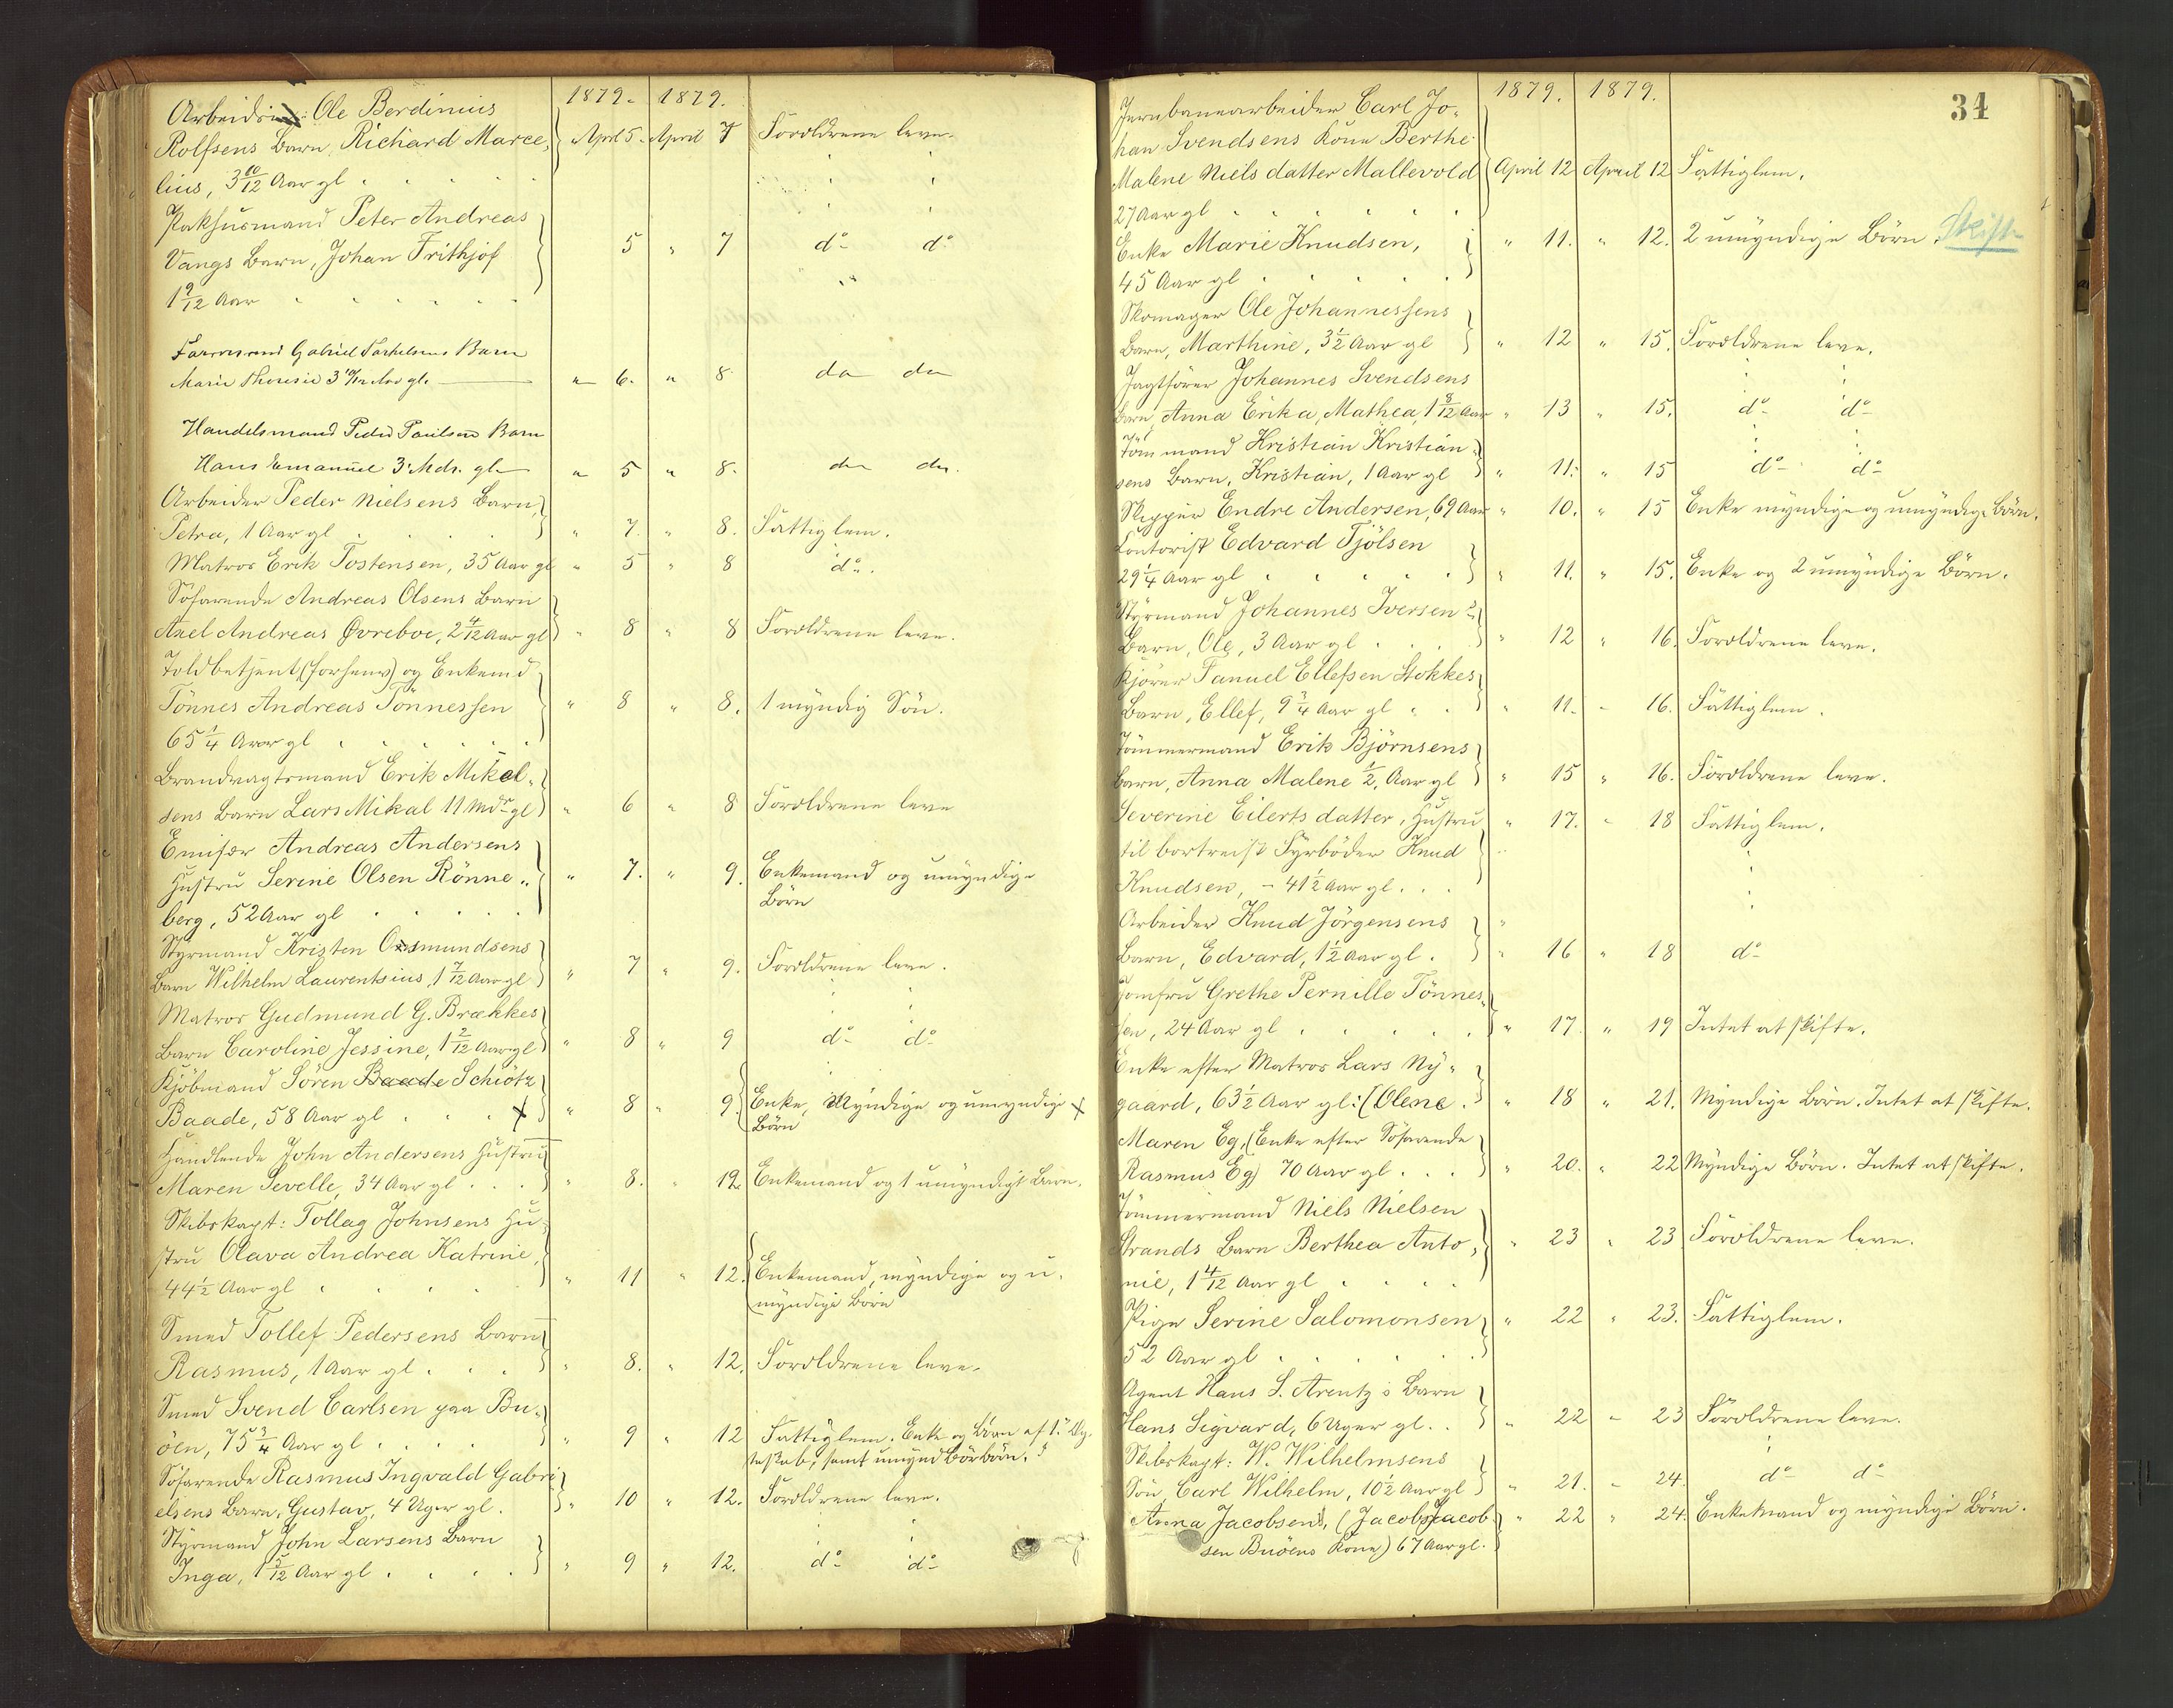 1879. 1879.
Arbeider Ole Berdinius
Rolfsens Barn, Richard Marce- April 5. April 7 Forældrene leve.
lius, 3 10/12 Aar gl
Pakhusmand Peter Andreas
Vangs Barn, Johan Frithjof 5 " 7 do do
1 9/12 Aar
Gabriel Barn
Marie Theresie 3 10/12 Aar gl. " 6. " 8. do do
Handelsmand Peder Paulsens Barn
Hans Emanuel 3 Mdr. gl " 5 " 8. do do.
Arbeider Peder Nielsens Barn,
Petra, 1 Aar gl " 7. " 8. Fattiglem.
Matros Erik Tostensen, 35 Aar gl " 5 " 8 do.
Söfarende Andreas Olsens Barn
Axel Andreas Øvreboe, 2 4/12 Aar gl " 8 " 8 Forældrene leve.
Toldbetjent (forhenv) og Enkemd
Tönnes Andreas Tönnessen " 8 " 8. 1 myndig Sön.
65 1/4 Aar gl
Brandvagtsmand Erik Mikal-
sens Barn Lars Mikal 11 Mdr gl " 6 " 8 Forældrene leve
Emisær Andreas Andersens
Hustru Serine Olsen Rönne- " 7. " 9. Enkemand og umyndige
berg, 52 Aar gl Börn
Styrmand Kristen Osmundsens
Barn Wilhelm Laurentsius, 1 7/12 Aar gl " 7 " 9. Forældrene leve.
Matros Gudmund G. Brækkes
Barn Caroline Jessine, 1 2/12 Aar gl " 8 " 9 do do
Kjöbmand Sören Baade Schiötz
Baade, 58 Aar gl " 8 " 9. Enke, Myndige og umyndige
Börn
Handlende John Andersens Hustru
Maren Sevelle, 34 Aar gl " 8. " 12. Enkemand og 1 umyndigt Barn.
Skibskapt: Tollag Johnsens Hu-
stru Olava Andrea Katrine,
44 1/2 Aar gl " 11 " 12. Enkemand, myndige og u-
myndige Börn
Smed Tollef Pedersens Barn
Rasmus, 1 Aar gl " 8. " 12. Forældrene leve.
Smed Svend Carlsen paa Bu-
öen, 75 3/4 Aar gl " 9 " 12 Fattiglem. Enke og Börn af 1. Æg-
teskab, samt umynd Börn.
Söfarende Rasmus Ingvald Gabri-
elsens Barn, Gustav, 4 Uger gl. " 10 " 12. Forældrene leve.
Styrmand John Larsens Barn
Inga, 1 5/12 Aar gl " 9 " 12. do do
34
1879. 1879.
Jernbanearbeider Carl Jo-
han Svendsens Kone Berthe
Malene Nielsdatter Mallevold April 12 April 12 Fattiglem.
27 Aar gl
Enke Marie Knudsen, " 11. " 12. 2 umyndige Börn. Skift
45 Aar gl
Skomager Ole Johannessens
Barn, Marthine, 3 1/2 Aar gl " 12 " 15. Forældrene leve.
Jagtförer Johannes Svendsens
Barn, Anna Erika, Mathea, 1 8/12 Aar " 13 " 15. do do
Tömmand Kristian Kristian-
sens Barn, Kristian, 1 Aar gl " 11. " 15 do do
Skipper Endre Andersen, 69 Aar " 10. " 15 Enke myndige og umyndige Börn.
Contorist Edvard Tjölsen
29 1/4 Aar gl " 11. " 15. Enke og 2 umyndige Börn.
Styrmand Johannes Iversens
Barn, Ole, 3 Aar gl " 12 " 16. Forældrene leve.
Kjörer Samuel Ellefsen Stokkes
Barn, Ellef, 9 3/4 Aar gl " 11. " 16. Fattiglem.
Tömmermand Erik Björnsens
Barn, Anna Malene 1/2 Aar gl " 15 " 16. Forældrene leve.
Severine Eilertsdatter, Hustru " 17. " 18 Fattiglem.
til bortreist Fyrböder Knud
Knudsen, - 41 1/2 Aar gl.
Arbeider Knud Jörgensens
Barn, Edvard, 1 1/2 Aar gl. " 16 " 18 do
Jomfru Grethe Pernille Tönnes-
sen, 24 Aar gl " 17. " 19 Intet at skifte.
Enke efter Matros Lars Ny-
gaard, 63 1/2 Aar gl: (Olene. " 18 " 21. Myndige Börn. Intet at skifte.
Maren Eg, (Enke efter Söfarende
Rasmus Eg) 70 Aar gl " 20. " 22 Myndige Börn. Intet at skifte.
Tömmermand Niels Nielsen
Strands Barn Berthea Anto- " 23 " 23 Forældrene leve.
nie, 1 4/12 Aar gl
Pige Serine Salomonsen " 22 " 23. Fattiglem.
52 Aar gl
Agent Hans S. Arentz's Barn
Hans Sigvard, 6 Uger gl. " 22 " 23 Forældrene leve.
Skibskapt: W. Wilhelmsens
Sön, Carl Wilhelm, 10 1/2 Aar gl " 21. " 24. do do
Anna Jacobsen, (Jacob Jacob- " 22 " 24. Enkemand og myndige Börn.
sen Buöens Kone) 67 Aar gl.